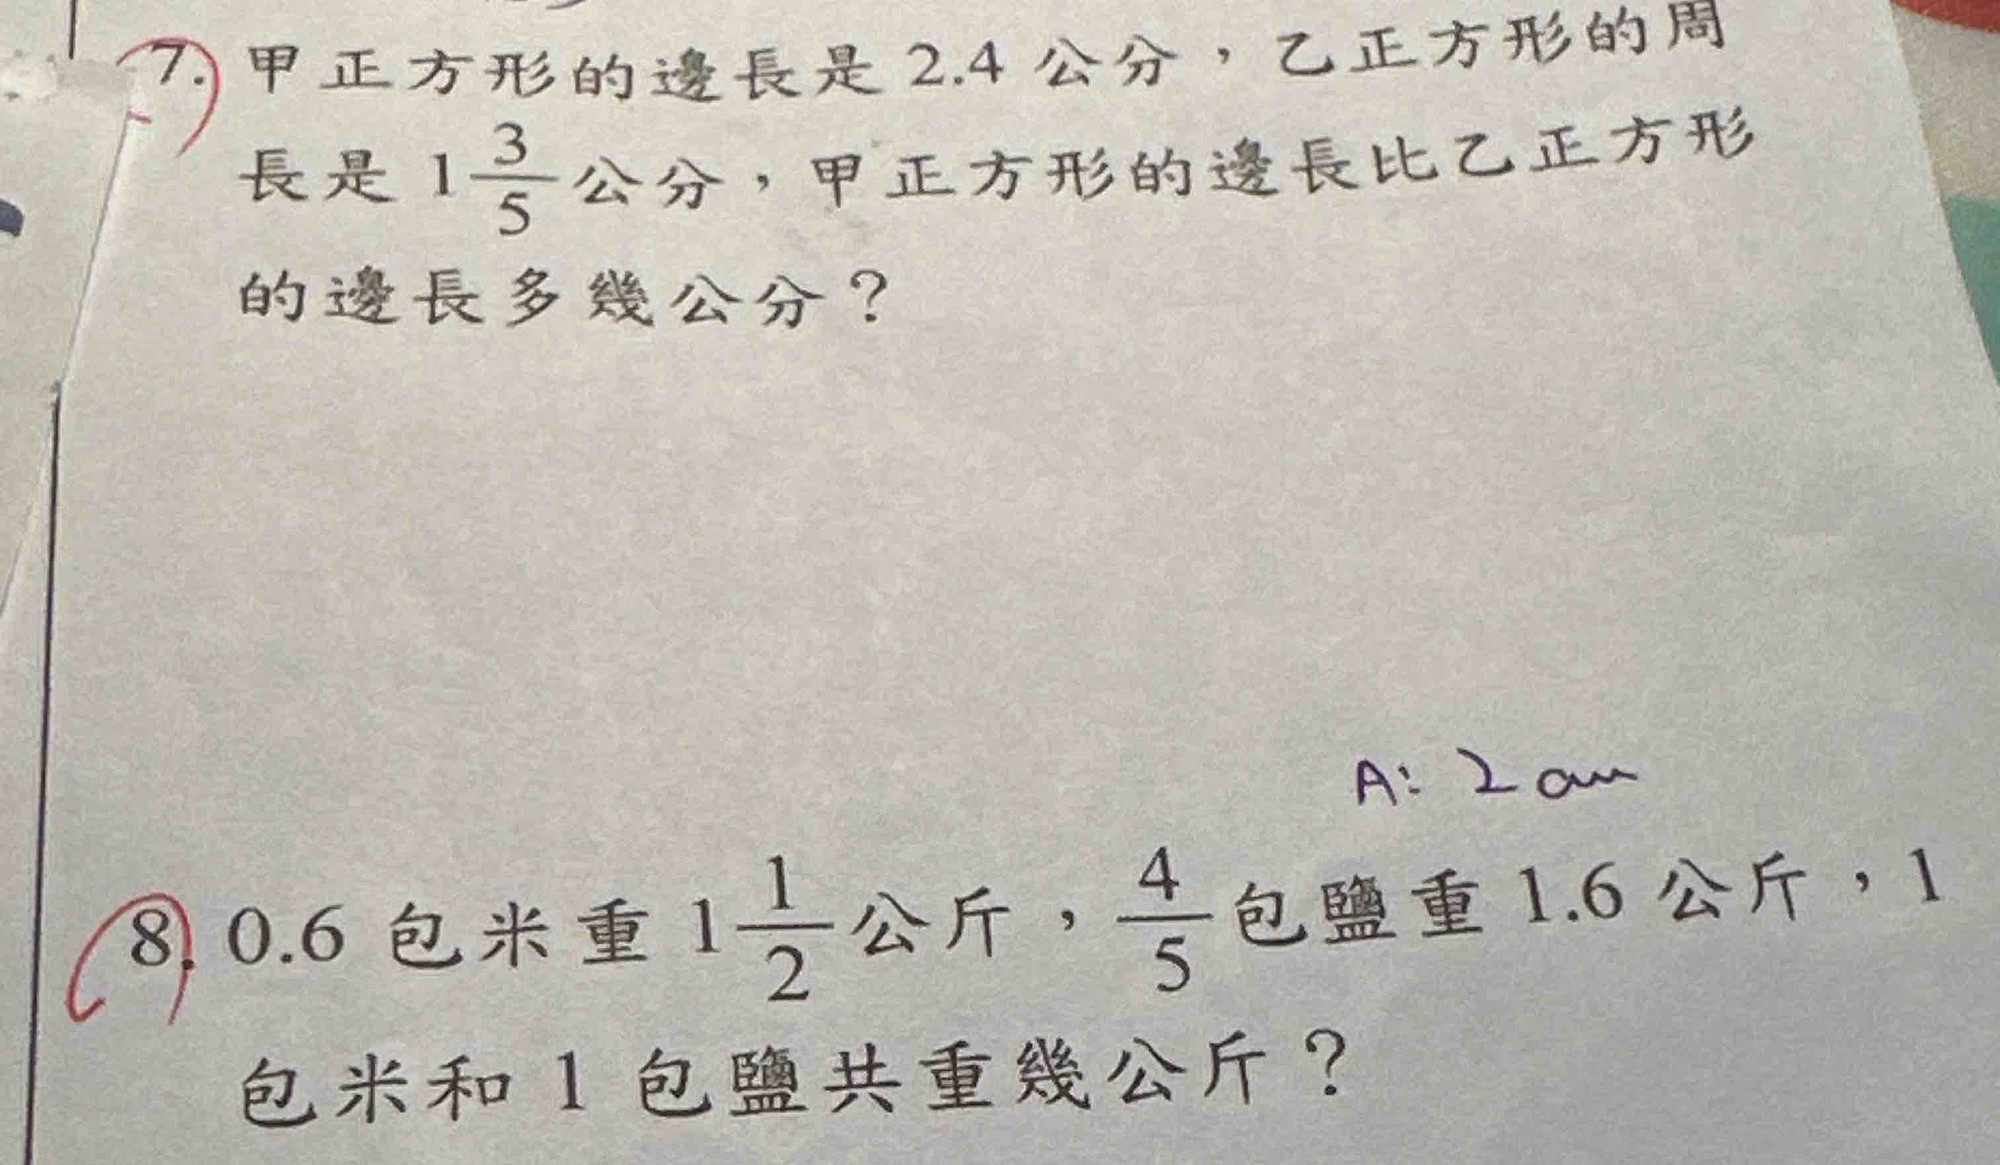 7. 甲正方形的邊長是 2.4 公分，乙正方形的周
長是 1 3/5 公分，甲正方形的邊長比乙正方形
的邊長多幾公分？
A: 2 cm
8. 0.6 包米重 1 1/2 公斤，4/5 包鹽重 1.6 公斤，1
包米和 1 包鹽共重幾公斤？